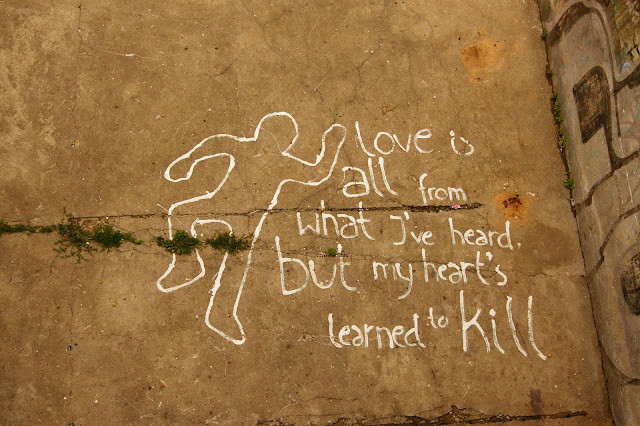 love is
all from
what I've heard.
but my heart's
learned to kill